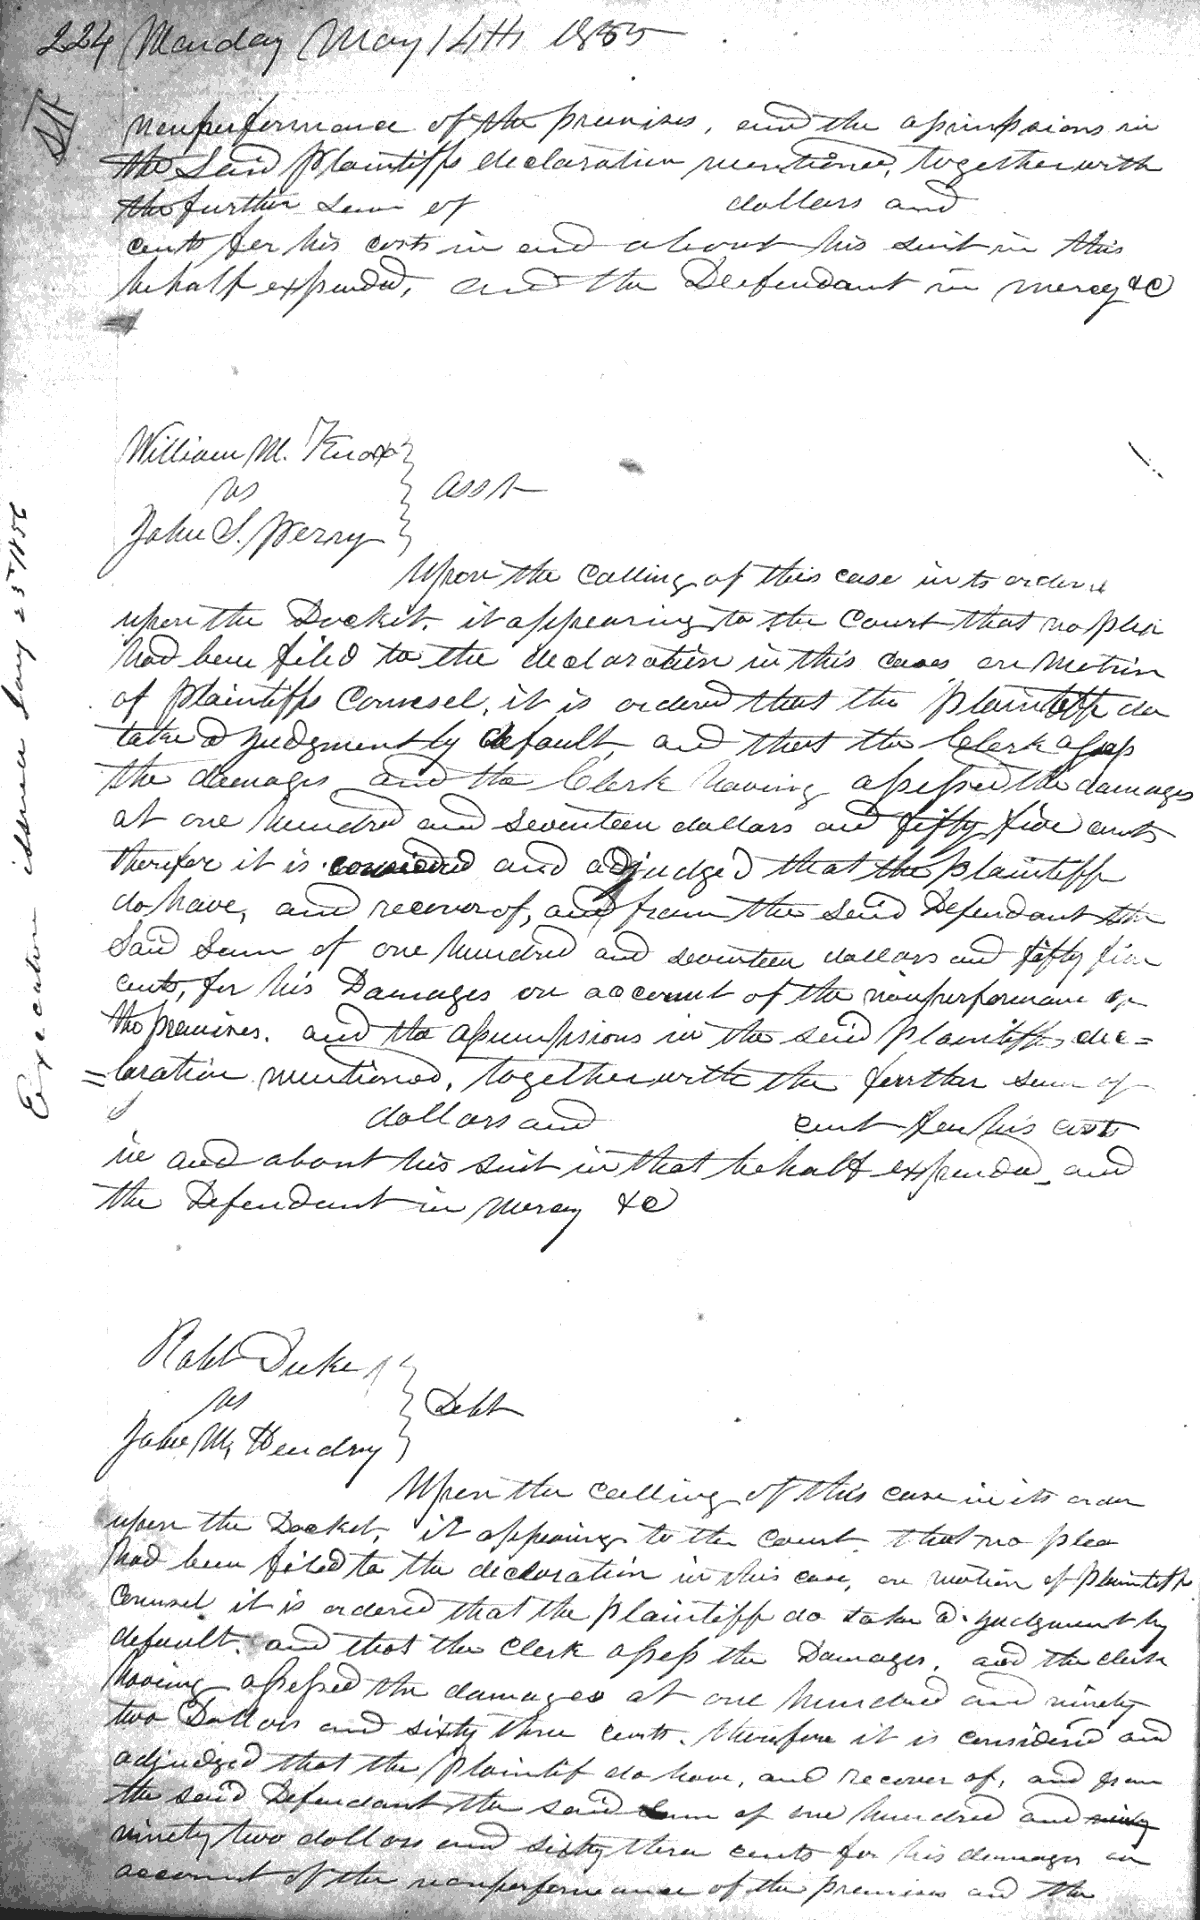 224 Monday May 14th 1855
nonperformance of the premises, and the assumpsions in
the said plaintiffs declaration mentioned, together with
the further sum of dollars and
cents for his costs in and about his suit in this
behalf expended, and the Defendant in mercy &C
William M. Knox
vs
John S. Perry
Asst
Upon the calling of this case in its order
upon the Docket, it appearing to the Court that no plea
had been filed to the declaration in this case on motion
of plaintiffs Counsel, it is ordered that the plaintiff do
take a judgment by default, and that the Clerk assess
the damages and the Clerk having assessed the damages
at one hundred and seventeen dollars and fifty five cents
therefor it is considered and adjudged that the plaintiff
do have, and recover of, and from the said Defendant the
said sum of one hundred and seventeen dollars and fifty five
cents, for his Damages on account of the nonperformance of
the premises. and the assumpsions in the said plaintiffs dec=
=laration mentioned, together with the further sum of
dollars and cent for his costs
in and about his suit in that behalf expended and
the Defendant in mercy &C
Execution issued Jany 25th 1856
Robt Duke
vs
John M, Hendry
Debt
Upon the calling of this case in its order
upon the Docket, it appearing to the court that no plea
had been filed to the declaration in this case, on motion of plaintiffs
counsel it is ordered that the plaintiff do take a judgment by
default, and that the clerk assess the Damages, and the clerk
having assessed the damages at one hundred and ninety
two Dollars and sixty three cents. therefore it is considered and
adjudged that the plaintif do have, and recover of, and from
the said Defendant the said sum of one hundred and ninty
ninety two dollars and sixty three cents for his damages on
account of the nonperformance of the premises and the